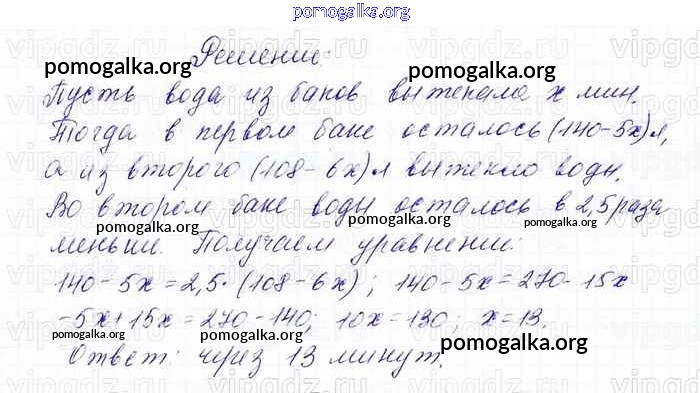 pomogalka.org
Решение:
pomogalka.org pomogalka.org
Пусть вода из баков вытекала x мин.
Тогда в первом баке осталось (140-5x) л,
а из второго (108-6x) л вытекло воды.
Во втором баке воды осталось в 2,5 раза
pomogalka.org pomogalka.org pomogalka.org
меньше. Получаем уравнение:
140-5x=2,5·(108-6x); 140-5x=270-15x
-5x+15x=270-140; 10x=130; x=13.
pomogalka.org pomogalka.org
Ответ: через 13 минут.